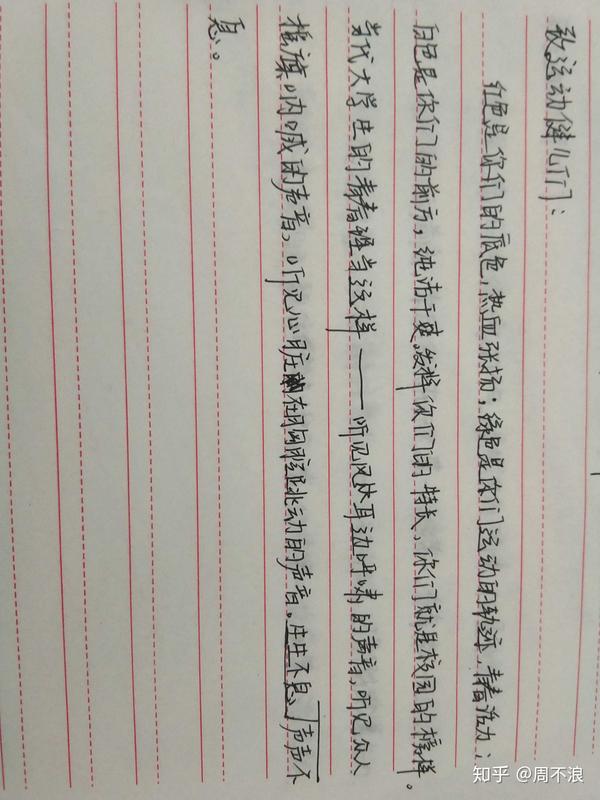 致运动健儿们：
红色是你们的底色，热血张扬；绿色是你们运动的轨迹，青春活力；
白色是你们的前方，纯洁干爽。发挥你们的特长，你们就是校园的榜样。
当代大学生的青春理当这样——听见风从耳边呼啸的声音，听见众人
摇旗呐喊的声音，听见心脏在胸腔跳动的声音。生生不息，声声不
息。
知乎 @周不浪